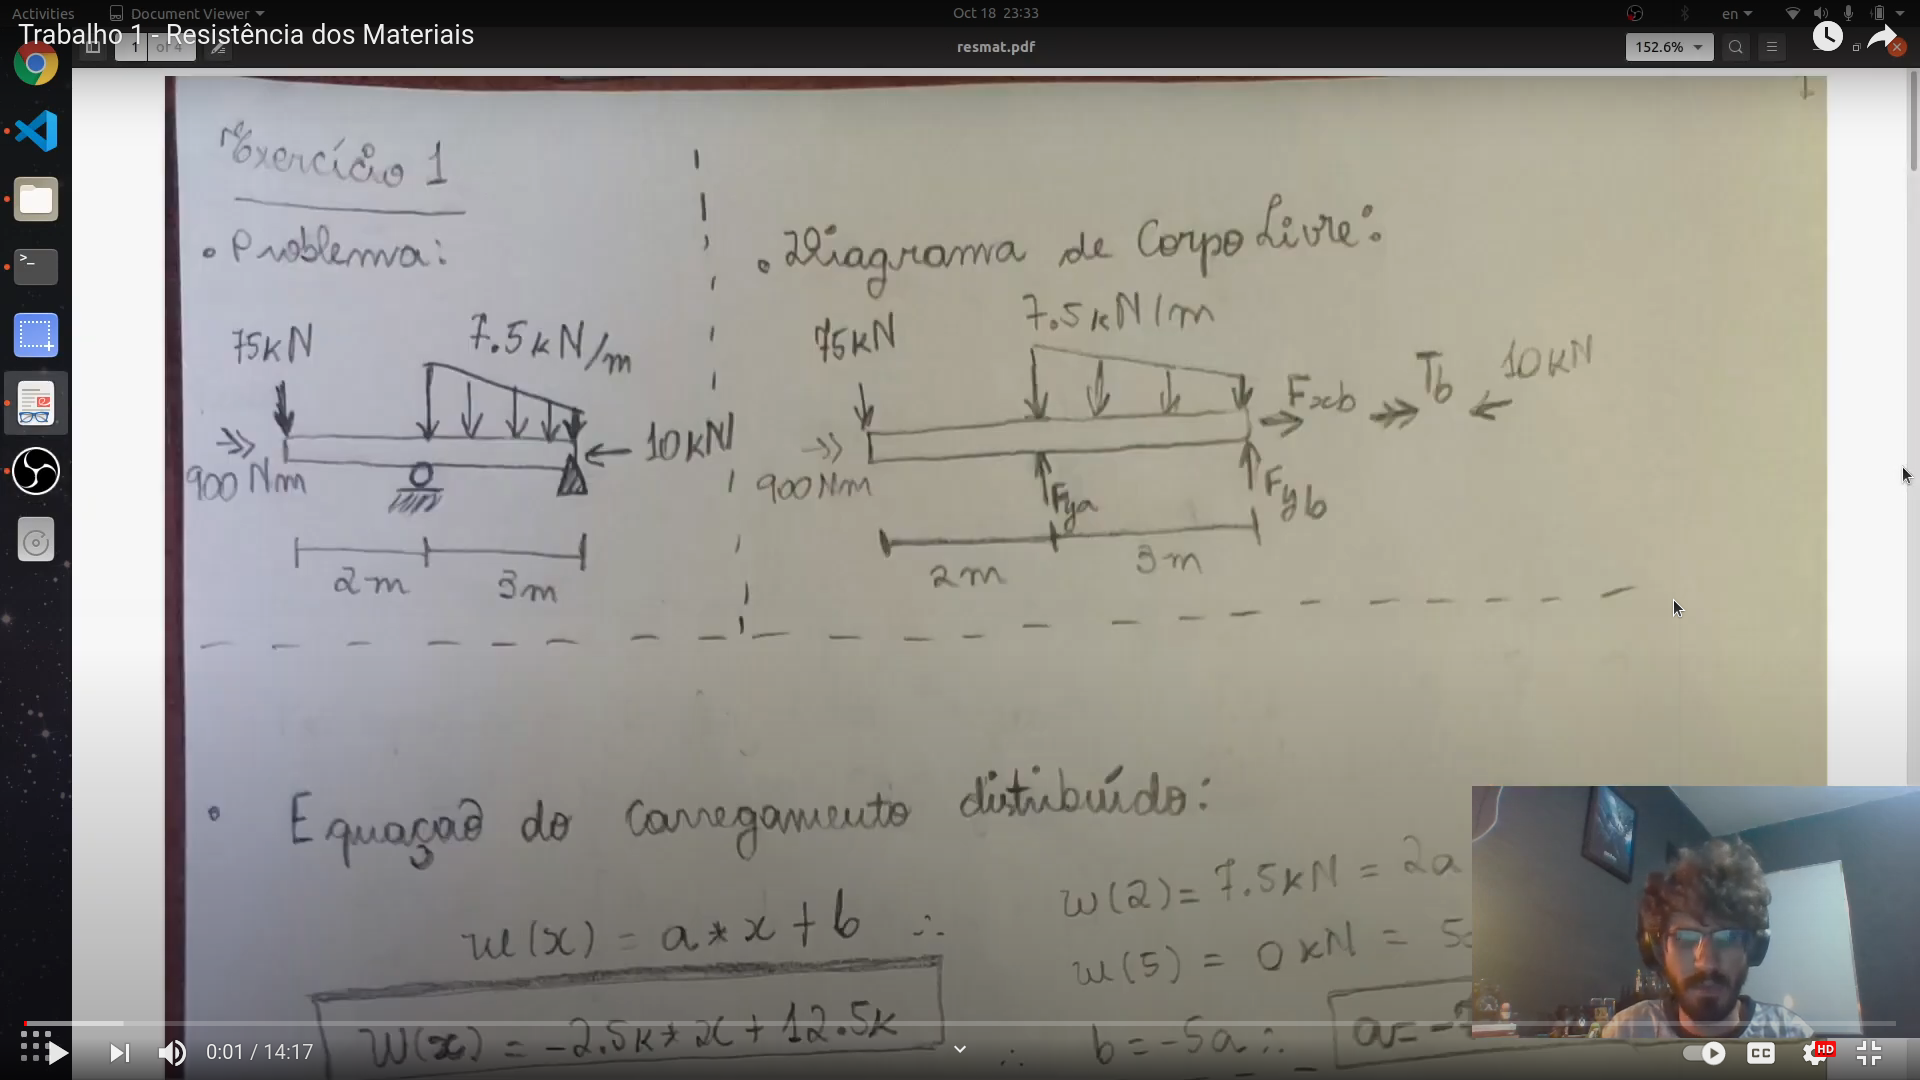 Activities
Document Viewer
Oct 18 23:33
en
Trabalho 1 - Resistência dos Materiais
1 of 4
resmat.pdf
152.6%
1
Exercício 1
• Problema:
• Diagrama de Corpo Livre:
75kN
7.5kN/m
10kN
900 Nm
2m
3m
75kN
7.5kN/m
Fxb
Tb
10kN
900Nm
Fya
Fyb
2m
3m
• Equação do carregamento distribuído:
w(x) = a*x + b ∴
w(2) = 7.5kN = 2a
w(5) = 0kN =
W(x) = -2.5k*x + 12.5k
∴ b = -5a ∴ a= -
0:01 / 14:17
CC
HD